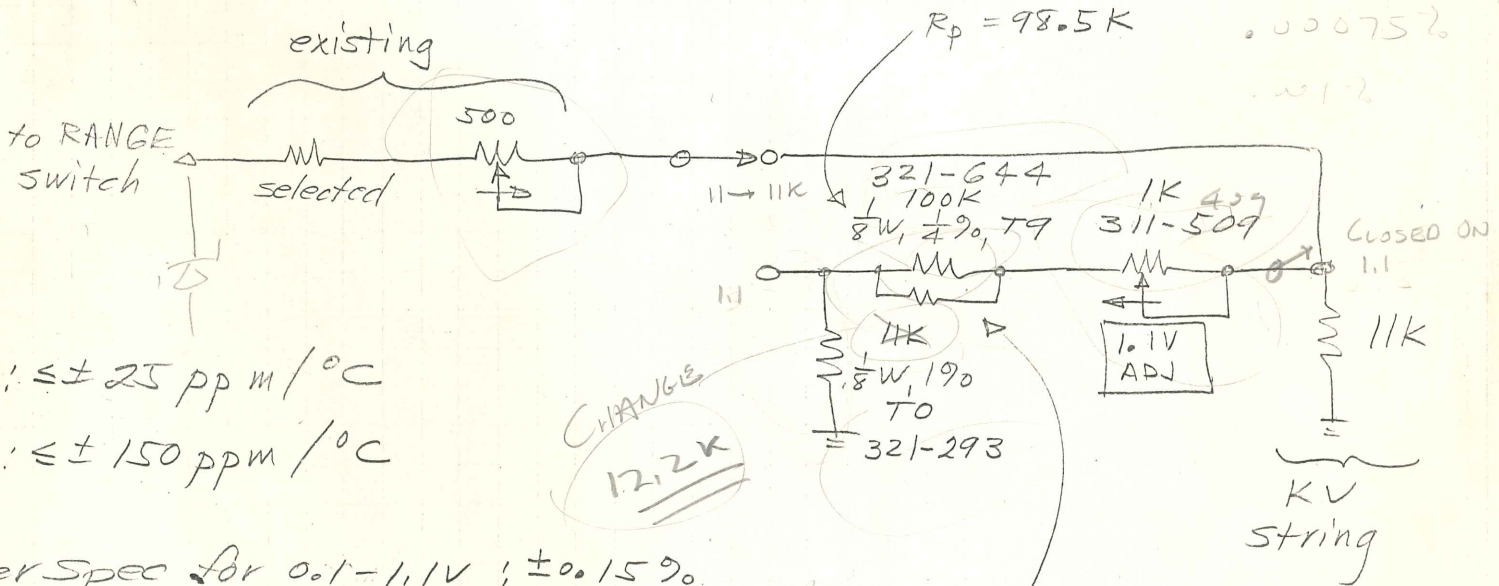 existing
Rp = 98.5K
.00075%
to RANGE
switch
selected
500
11→11K
321-644
100K
1/8W, 1/4%, T9
1K
311-509
CLOSED ON
1.1
1.1
11K
1/8W, 1%
T0
321-293
1.1V
ADJ
11K
CHANGE
12.2K
: ≤ ± 25 ppm/°C
: ≤ ± 150 ppm/°C
KV
string
er Spec for 0.1-1.1V ; ±0.15%